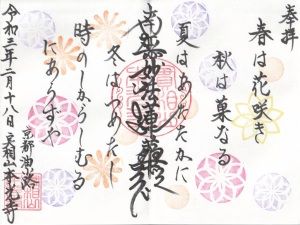 奉拝
春は花咲き
秋は菓なる
南無妙法蓮華経
夏はあたたかに
冬はつめたし
時のしからしむる
にありずや
京都油小路
実相山本光寺
令和三年二月十八日